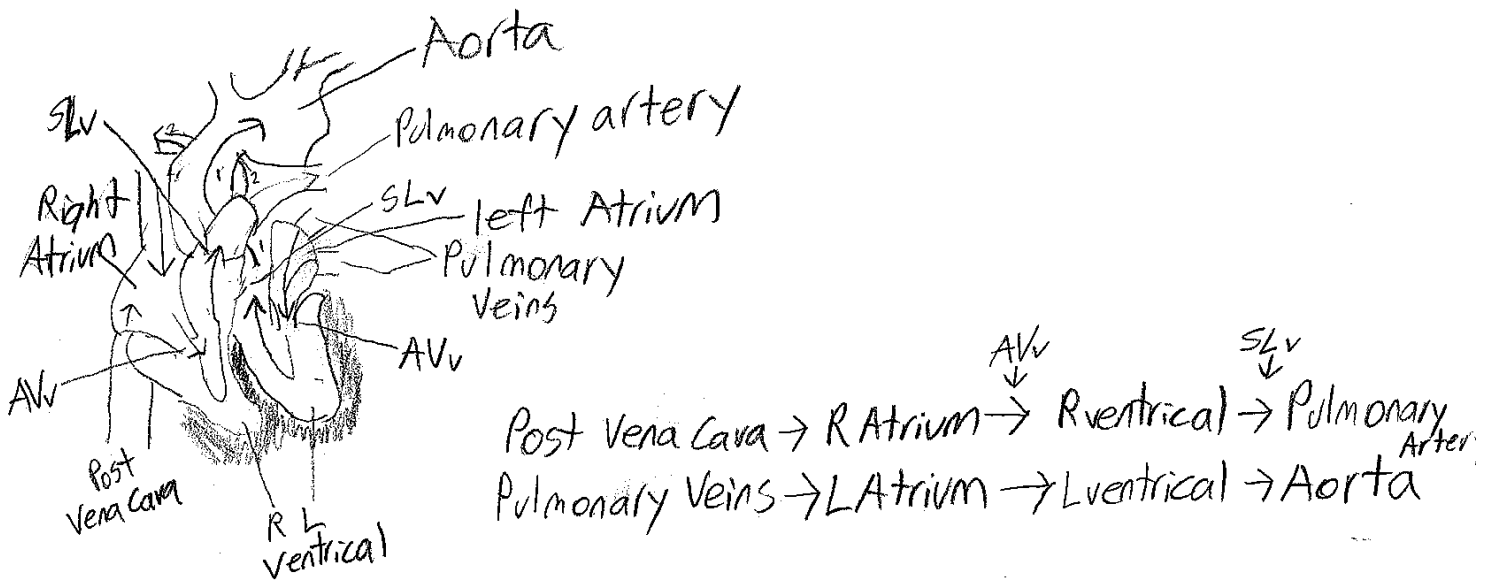 Aorta
SLv
Pulmonary artery
2
1
2
Right
Atrium
SLv
left Atrium
1
Pulmonary
Veins
AVv
AVv
Post
Vena Cava
R L
Ventrical
AVv
SLv
Post Vena Cava → R Atrium → R ventrical → Pulmonary
Arter
Pulmonary Veins → L Atrium → L ventrical → Aorta